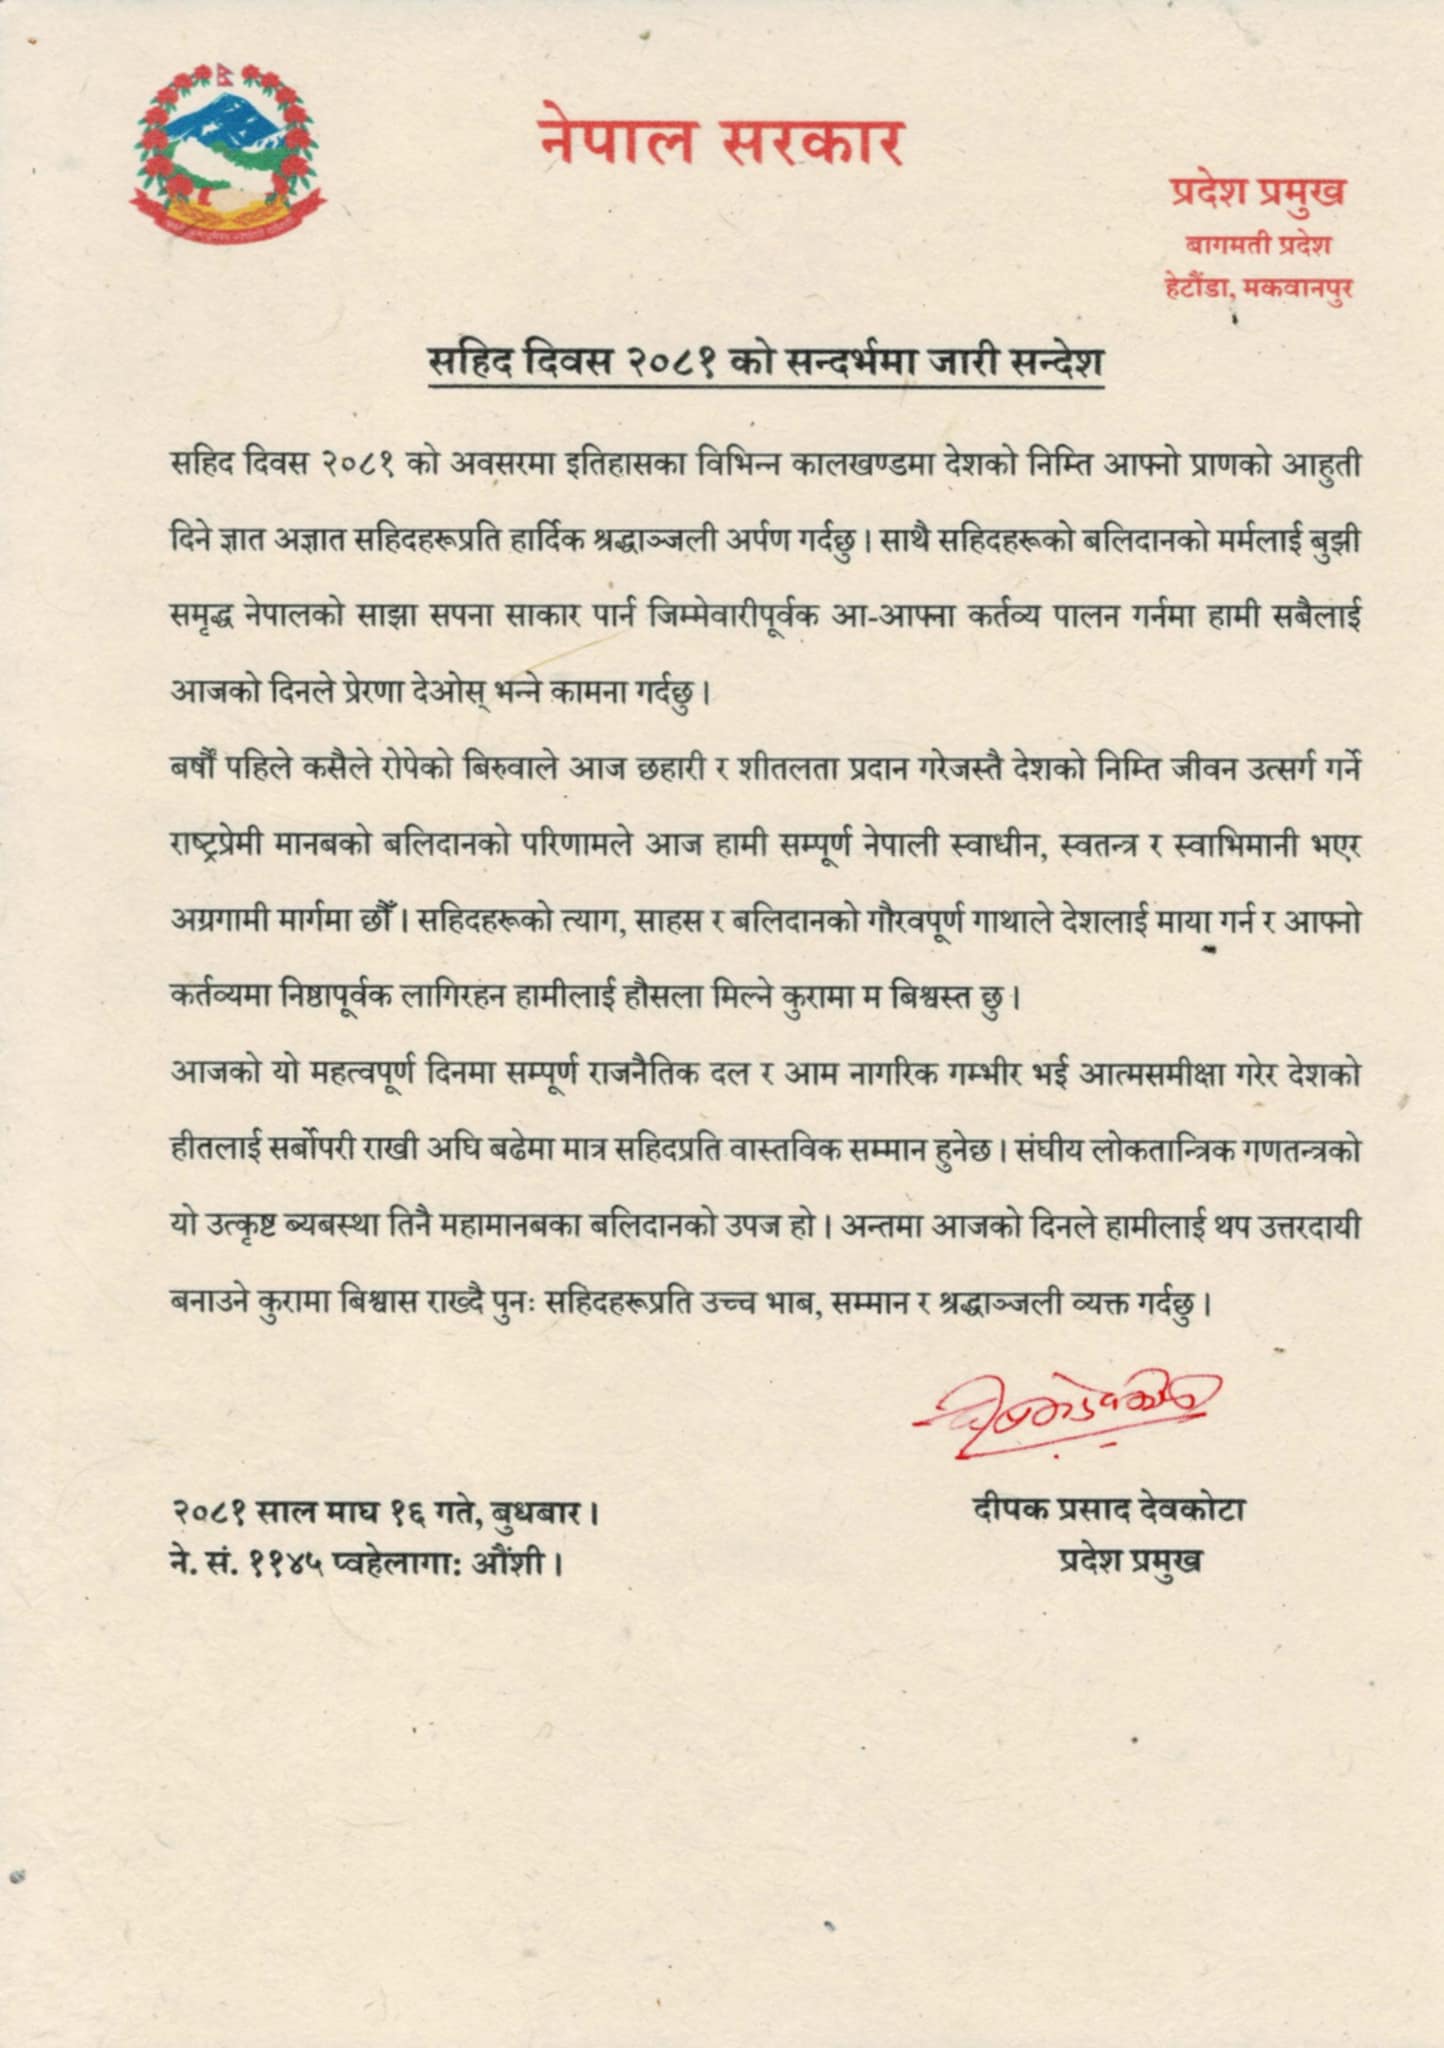 नेपाल सरकार
प्रदेश प्रमुख
बागमती प्रदेश
हेटौंडा, मकवानपुर
सहिद दिवस २०८१ को सन्दर्भमा जारी सन्देश
सहिद दिवस २०८१ को अवसरमा इतिहासका विभिन्न कालखण्डमा देशको निम्ति आफ्नो प्राणको आहुती
दिने ज्ञात अज्ञात सहिदहरूप्रति हार्दिक श्रद्धाञ्जली अर्पण गर्दछु । साथै सहिदहरूको बलिदानको मर्मलाई बुझी
समृद्ध नेपालको साझा सपना साकार पार्न जिम्मेवारीपूर्वक आ-आफ्ना कर्तव्य पालन गर्नमा हामी सबैलाई
आजको दिनले प्रेरणा देओस् भन्ने कामना गर्दछु ।
बर्षौं पहिले कसैले रोपेको बिरुवाले आज छहारी र शीतलता प्रदान गरेजस्तै देशको निम्ति जीवन उत्सर्ग गर्ने
राष्ट्रप्रेमी मानबको बलिदानको परिणामले आज हामी सम्पूर्ण नेपाली स्वाधीन, स्वतन्त्र र स्वाभिमानी भएर
अग्रगामी मार्गमा छौँ । सहिदहरूको त्याग, साहस र बलिदानको गौरवपूर्ण गाथाले देशलाई माया गर्न र आफ्नो
कर्तव्यमा निष्ठापूर्वक लागिरहन हामीलाई हौसला मिल्ने कुरामा म बिश्वस्त छु ।
आजको यो महत्वपूर्ण दिनमा सम्पूर्ण राजनैतिक दल र आम नागरिक गम्भीर भई आत्मसमीक्षा गरेर देशको
हीतलाई सर्बोपरी राखी अघि बढेमा मात्र सहिदप्रति वास्तविक सम्मान हुनेछ । संघीय लोकतान्त्रिक गणतन्त्रको
यो उत्कृष्ट ब्यबस्था तिनै महामानबका बलिदानको उपज हो । अन्तमा आजको दिनले हामीलाई थप उत्तरदायी
बनाउने कुरामा बिश्वास राख्दै पुनः सहिदहरूप्रति उच्च भाब, सम्मान र श्रद्धाञ्जली व्यक्त गर्दछु ।
२०८१ साल माघ १६ गते, बुधबार ।
ने. सं. ११४५ प्वहेलागा: औंशी ।
दीपक प्रसाद देवकोटा
प्रदेश प्रमुख